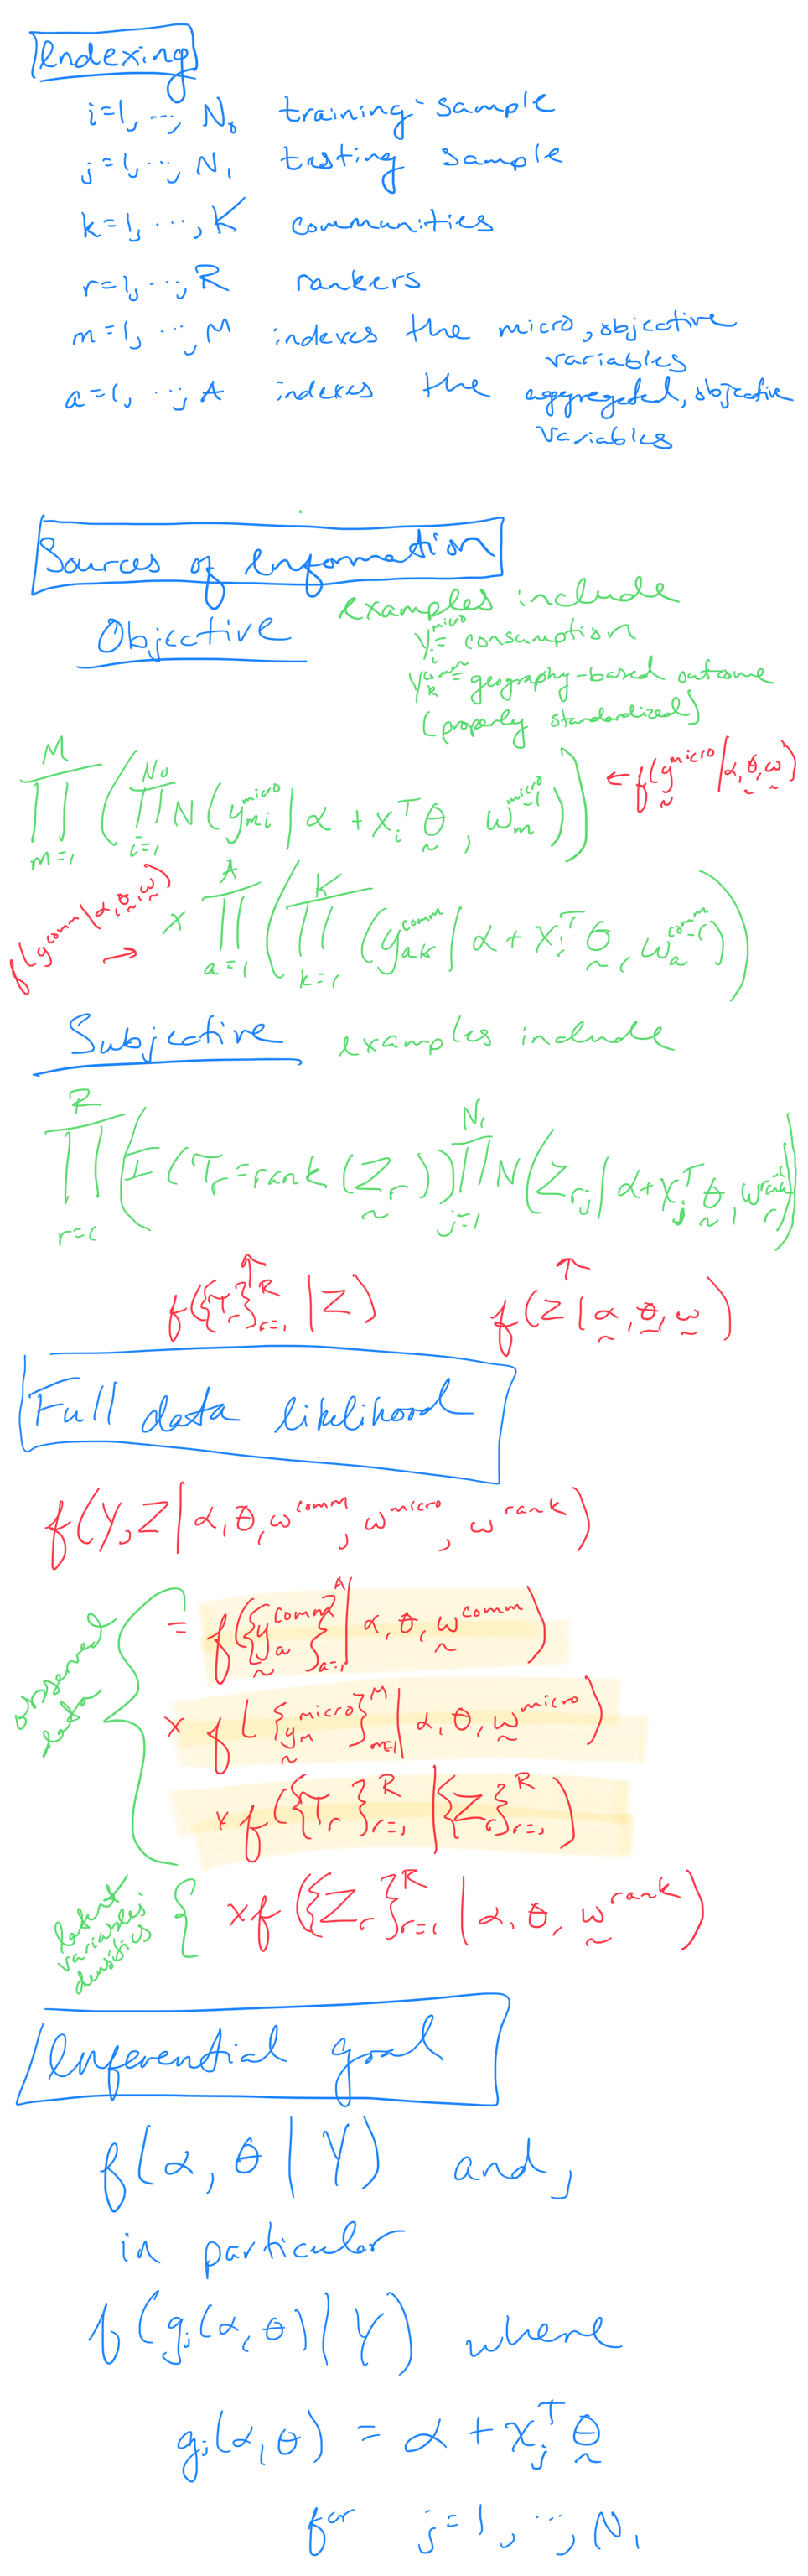 Indexing
i=1, ..., N₀ training sample
j=1, ..., N₁ testing sample
k=1, ..., K communities
r=1, ..., R rankers
m=1, ..., M indexes the micro, objective
variables
a=1, ..., A indexes the aggregated, objective
variables
Sources of Information
Objective
examples include
yᵢ^micro = consumption
yₖ^comm = geography-based outcome
(properly standardized)
∏_{m=1}^{M} (∏_{i=1}^{N₀} N(y_{mi}^{micro} | α + xᵢᵀ θ, ω_m^{micro -1})) ← f(y^micro | α, θ, ω)
f(y^comm | α, θ, ω) → × ∏_{a=1}^{A} (∏_{k=1}^{K} (y_{ak}^{comm} | α + xᵢᵀ θ, ω_a^{comm -1}))
Subjective examples include
∏_{r=1}^{R} (I(T_r = rank(Z_r)) ∏_{j=1}^{N₁} N(Z_{rj} | α + x_jᵀ θ, ω_r^{rank -1}))
↑ ↑
f({T_r}_{r=1}^{R} | Z) f(Z | α, θ, ω)
Full data likelihood
f(Y, Z | α, θ, ω^comm, ω^micro, ω^rank)
observed data { = f({y_a^comm}_{a=1}^{A} | α, θ, ω^comm)
× f({y_m^micro}_{m=1}^{M} | α, θ, ω^micro)
× f({T_r}_{r=1}^{R} | {Z_r}_{r=1}^{R})
latent variables densities { × f({Z_r}_{r=1}^{R} | α, θ, ω^rank)
Inferential goal
f(α, θ | Y) and,
in particular
f(g_j(α, θ) | Y) where
g_j(α, θ) = α + x_jᵀ θ
for j=1, ..., N₁